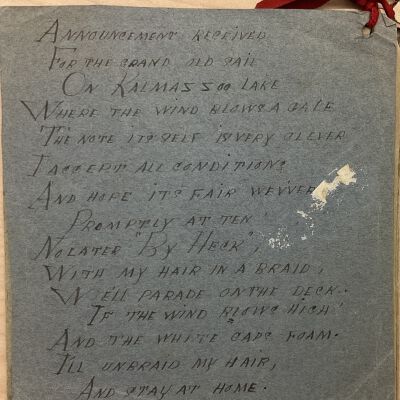 Announcement received
For the grand old sail
On Kalmaszoo Lake
Where the wind blows a gale
The note its self is very clever
I accept all conditions
And hope its fair wevver
Promptly at ten
No later "By Heck",
With my hair in a braid,
We'll parade on the deck.
If the wind blows high
And the white caps foam.
I'll unbraid my hair,
And stay at home.